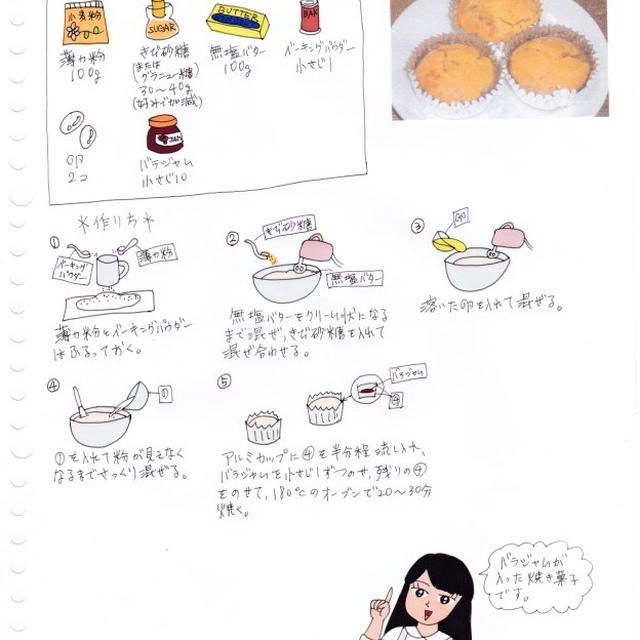 小麦粉
SUGAR
BUTTER
BAR
薄力粉
100g
きび砂糖
(または
グラニュー糖)
30〜40g
(好みで加減)
無塩バター
100g
ベーキングパウダー
小さじ1
卵
2コ
JAM
バラジャム
小さじ10
*作り方*
①
ベーキング
パウダー
薄力粉
薄力粉とベーキングパウダー
はふるっておく。
②
きび砂糖
無塩バター
無塩バターをクリーム状になる
まで混ぜ,きび砂糖を入れて
混ぜ合わせる。
③
卵
溶いた卵を入れて混ぜる。
④
①
①を入れて粉が見えなく
なるまでさっくり混ぜる。
⑤
バラジャム
④
アルミカップに④を半分程流し入れ,
バラジャムを小さじ1ずつのせ,残りの④
をのせて,180℃のオーブンで20〜30分
焼く。
バラジャムが
入った焼き菓子
です。